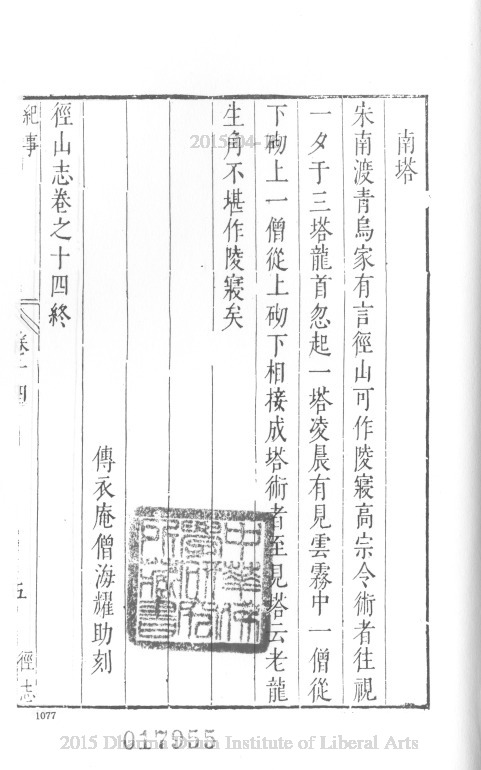 南塔
宋南渡青烏家有言徑山可作陵寢高宗令術者往視
一夕于三塔龍首忽起一塔凌晨有見雲霧中一僧從
下砌上一僧從上砌下相接成塔術者至見塔云老龍
生角不堪作陵寢矣
傳衣庵僧海耀助刻
徑山志卷之十四終
紀事
卷十四
五
徑志
中華佛
學研究
所藏書
1077
017955
2015 Dharma Drum Institute of Liberal Arts